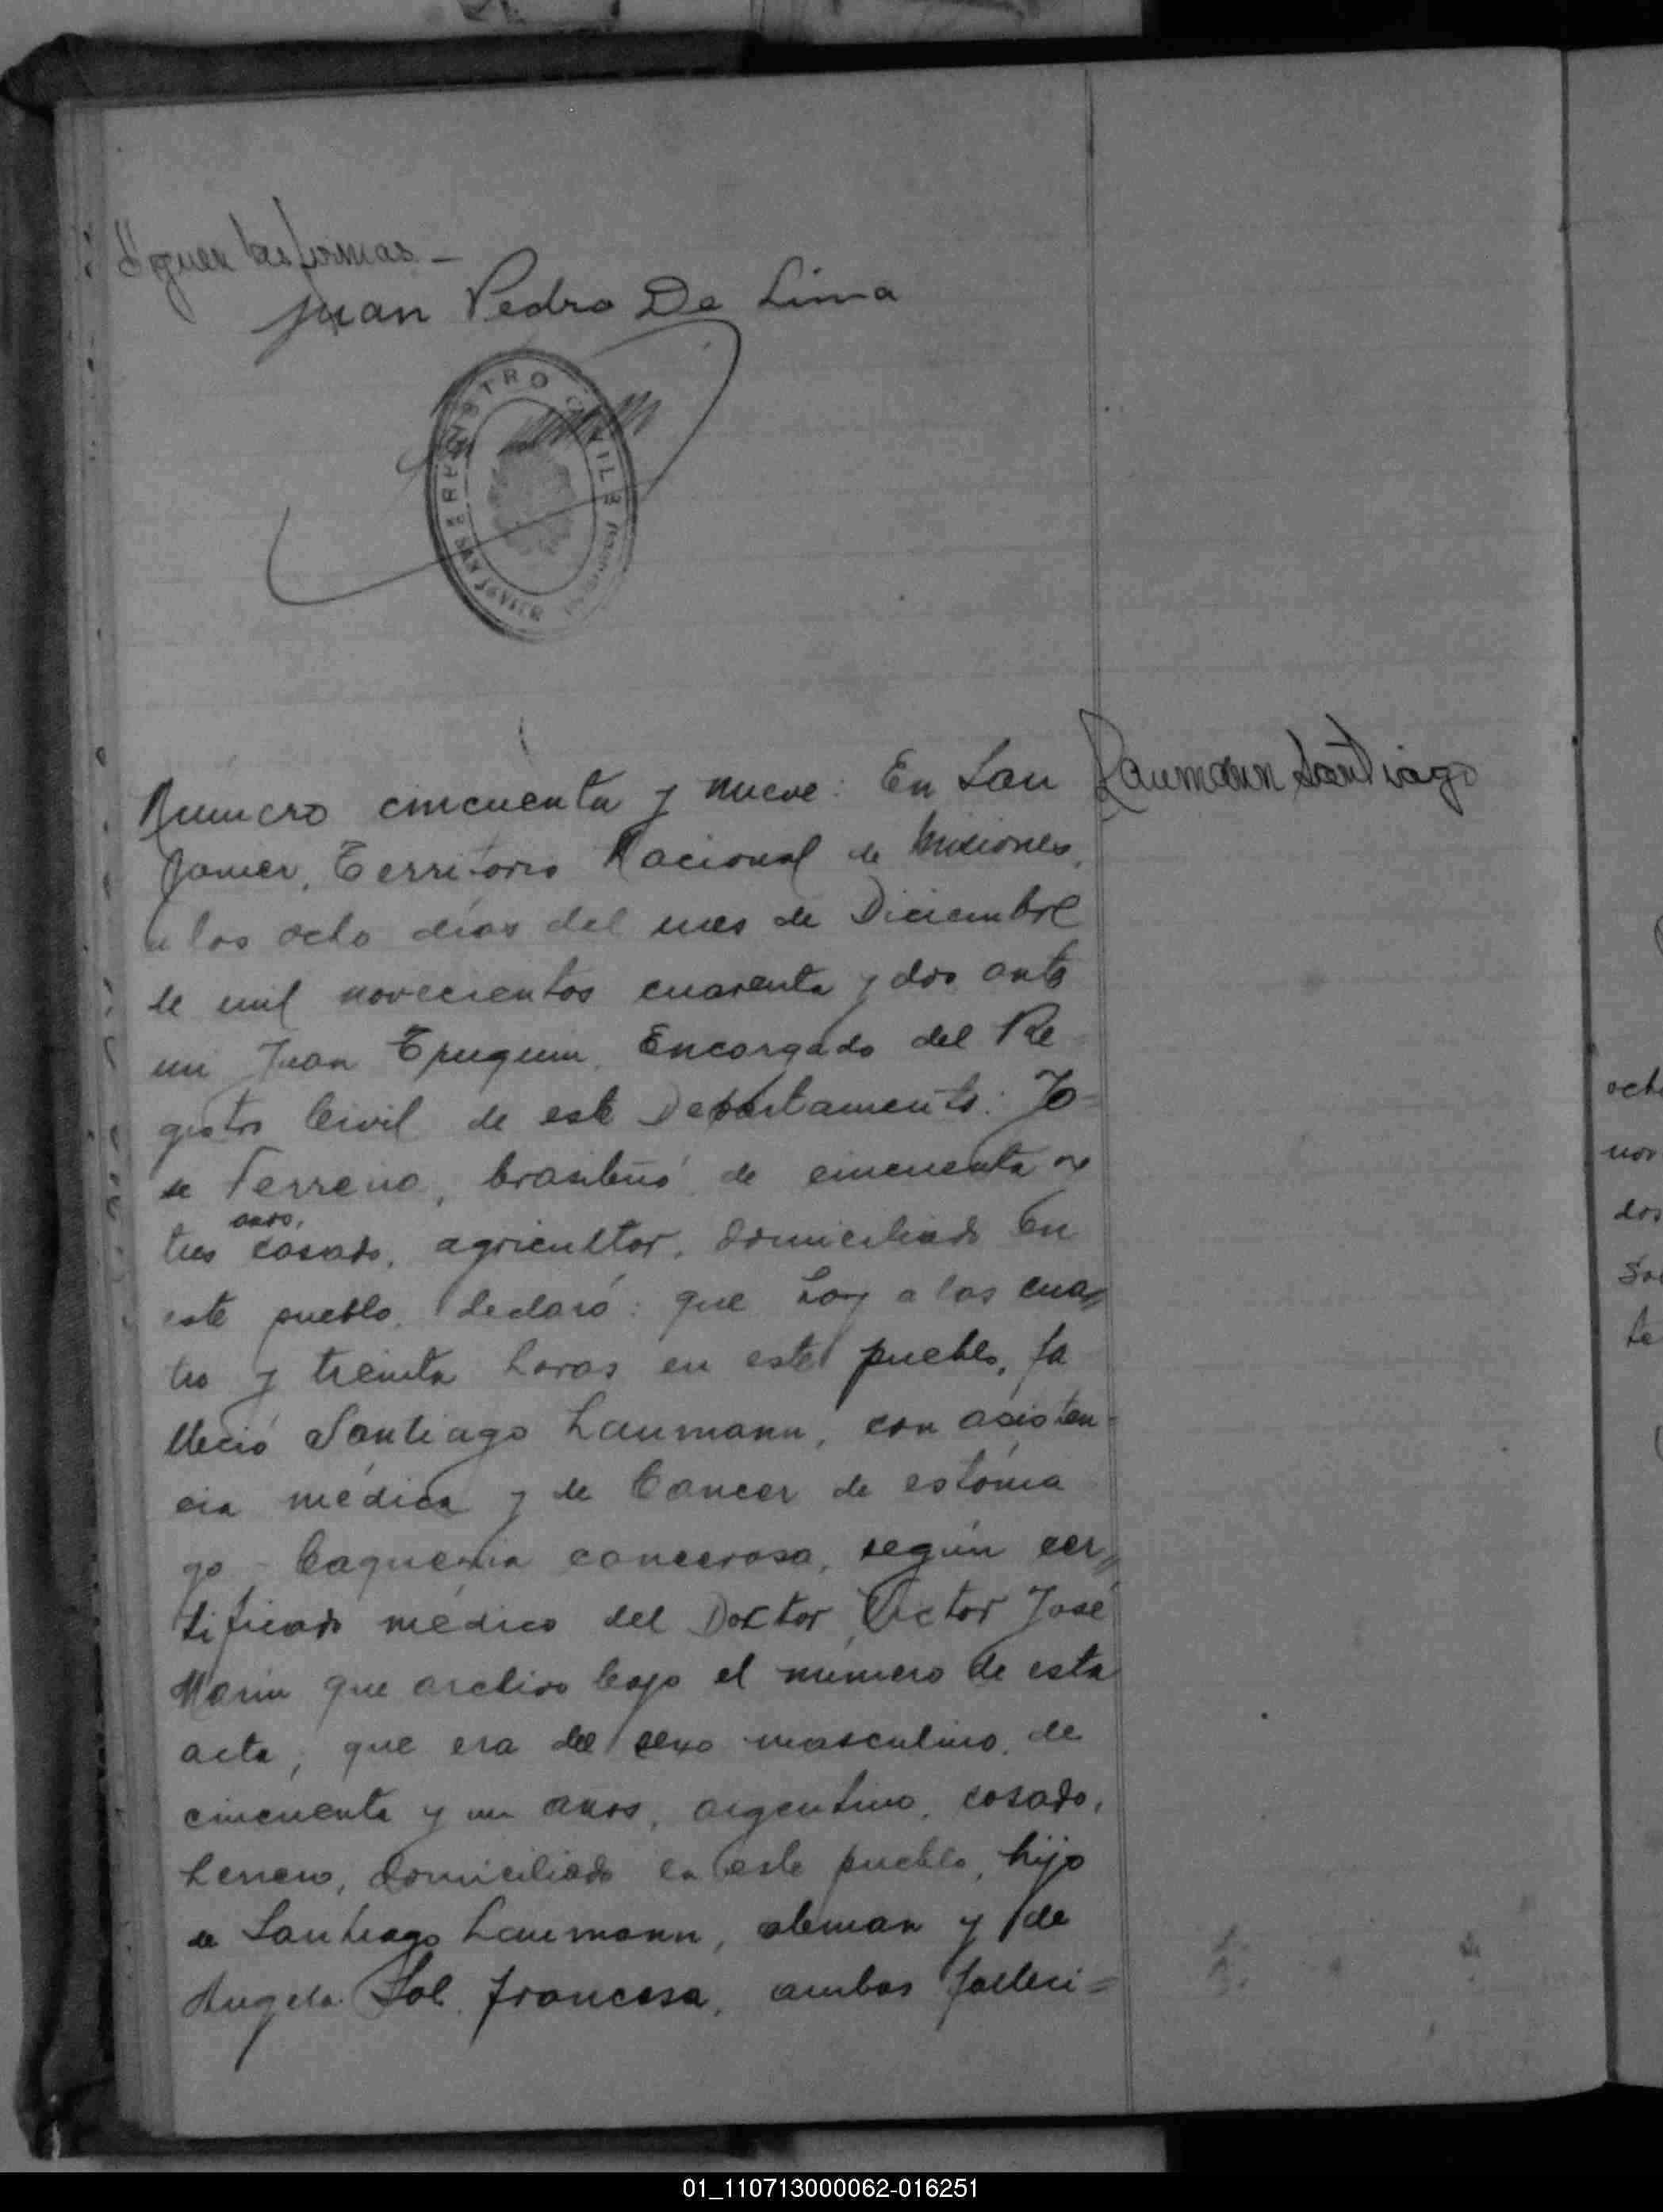 Siguen las firmas —
Juan Pedro De Lima
REGISTRO CIVIL
SAN JAVIER
Laumann Santiago
Número cincuenta y nueve: En San
Javier, Territorio Nacional de Misiones,
a los ocho días del mes de Diciembre
de mil novecientos cuarenta y dos, ante
mi Juan Encargado del Re-
gistro Civil de este Departamento: Jo=
se Ferreira, brasileño de cincuenta y
tres años, casado, agricultor, domiciliado en
este pueblo, declaró: que hoy a las cua=
tro y treinta horas en este pueblo, fa
lleció Santiago Laumann, con asisten=
cia médica y de Cancer de estóma
go - Caquexia cancerosa, según cer=
tificado médico del Doctor Victor José
Marin que archivo bajo el número de esta
acta, que era del sexo masculino, de
cincuenta y un años, argentino, casado,
herrero, domiciliado en este pueblo, hijo
de Santiago Laumann, aleman y de
Angela Sol, francesa, ambos falleci=
och
nov
dos
te
01_110713000062-016251